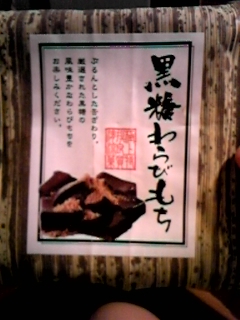 黒糖わらびもち
ぷるんとした舌ざわり。
厳選された黒糖の
風味豊かなわらびもちを
お楽しみください。